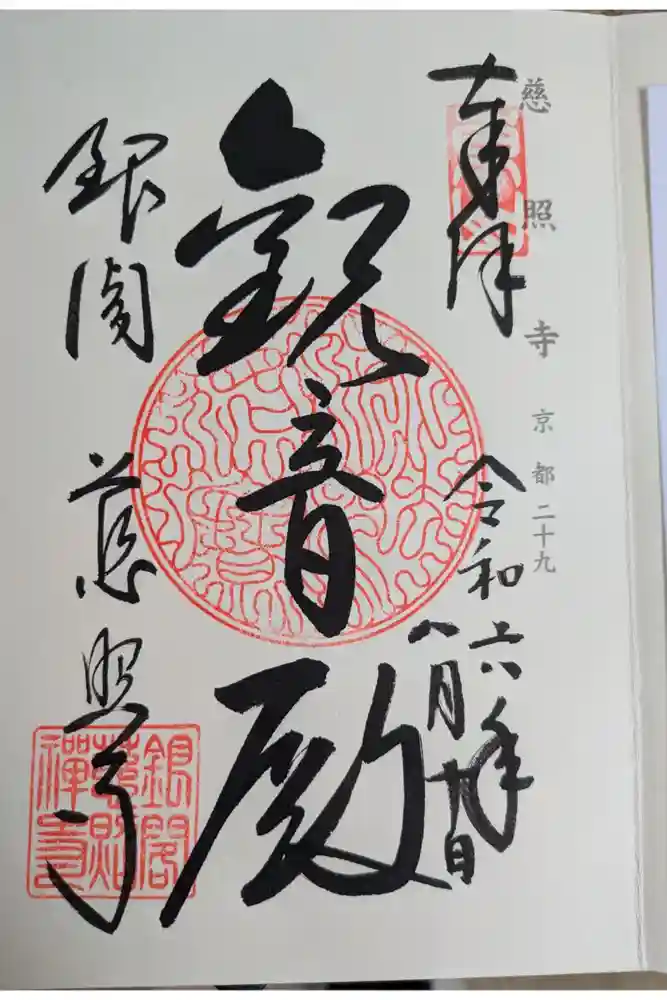 慈照寺 京都二十九
奉拝
令和六年
八月十九日
観音殿
銀閣 慈照寺
銀閣
慈照
禪寺